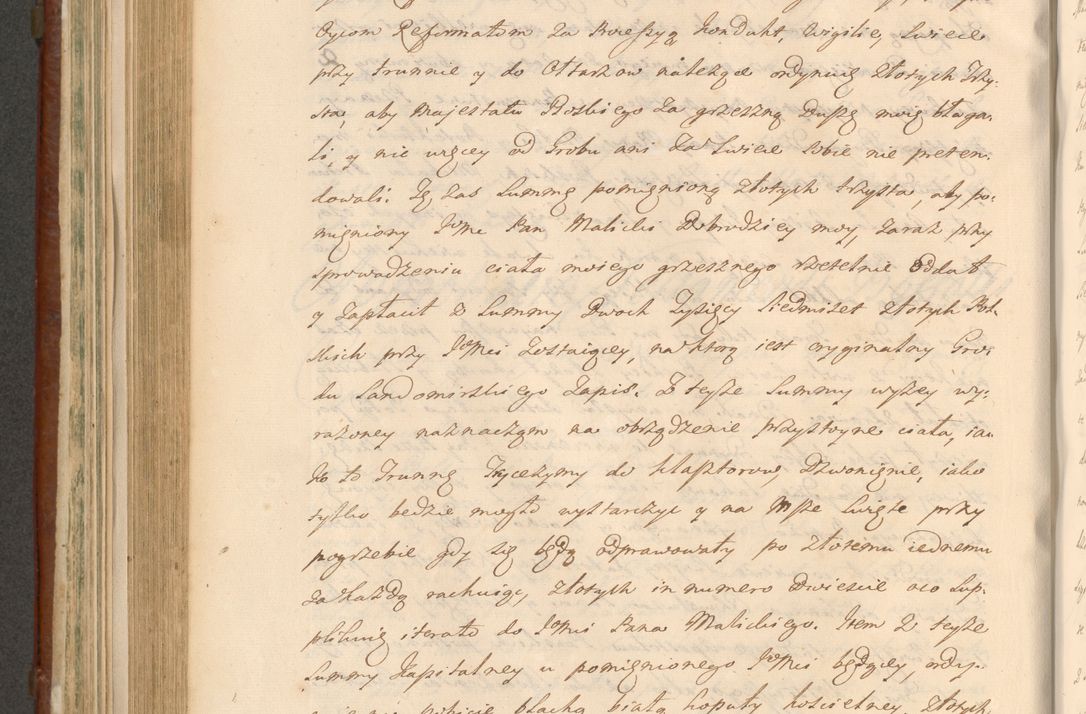 Oycom Reformatom za Kreszyą Kondukt, Wigilie, Swiece
przy trunnie y do Ołtarzow należące ordynuię Złotych Trzy
sta aby Majestatu Boskiego za grzeszną Duszę moię błaga:
li, y nic więcey od Grobu ani za Swiece sobie nie preten:
dowali. Tę zas Summę pomienioną Złotych trzysta, aby po:
mieniony JMc Pan Malicki Dobrodziey moy, zaraz przy
sprowadzeniu ciała moiego grzesznego rzetelnie oddał
y zapłacił z Summy Dwoch Tysięcy Siedmiset Złotych Pol:
skich przy JMci zostaiącey, na ktorą iest oryginalny Gro:
du Sandomirskiego Zapis. Z teyże Summy wyżey wy:
rażoney naznaczam na obrządzenie przystoyne ciała, ia:
ko to Trunnę do klasztorow, Dzwonienie, iako
tylko bedzie mogło wystarczyć y na Msze Swięte przy
pogrzebie gdy się będą odprawowały po złotemu iednemu
za każdą rachuiąc, Złotych in numero Dwiescie oco Sup:
plikuię iterato do JMci Pana Malickiego. Item z teyże
Summy Kapitalney u pomienionego JMci będącey, ordy:
blachą białą kopuły koscielney, Złotych